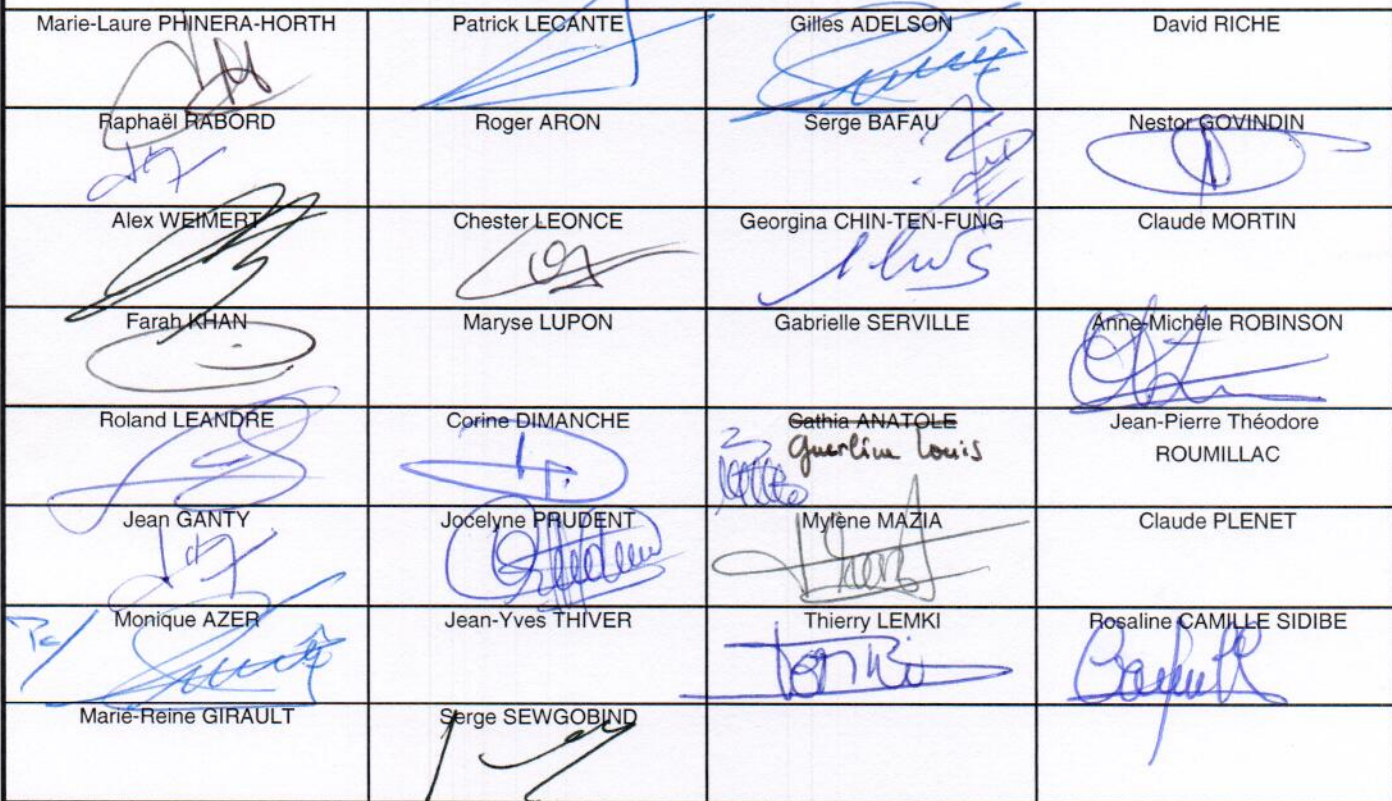 Marie-Laure PHINERA-HORTH
Patrick LECANTE
Gilles ADELSON
David RICHE
Raphaël RABORD
Roger ARON
Serge BAFAU
Nestor GOVINDIN
Alex WEIMERT
Chester LEONCE
Georgina CHIN-TEN-FUNG
Claude MORTIN
Farah KHAN
Maryse LUPON
Gabrielle SERVILLE
Anne-Michèle ROBINSON
Roland LEANDRE
Corine DIMANCHE
Cathia ANATOLE
Guerline Louis
Jean-Pierre Théodore
ROUMILLAC
Jean GANTY
Jocelyne PRUDENT
Mylène MAZIA
Claude PLENET
Monique AZER
Jean-Yves THIVER
Thierry LEMKI
Rosaline CAMILLE SIDIBE
Marie-Reine GIRAULT
Serge SEWGOBIND